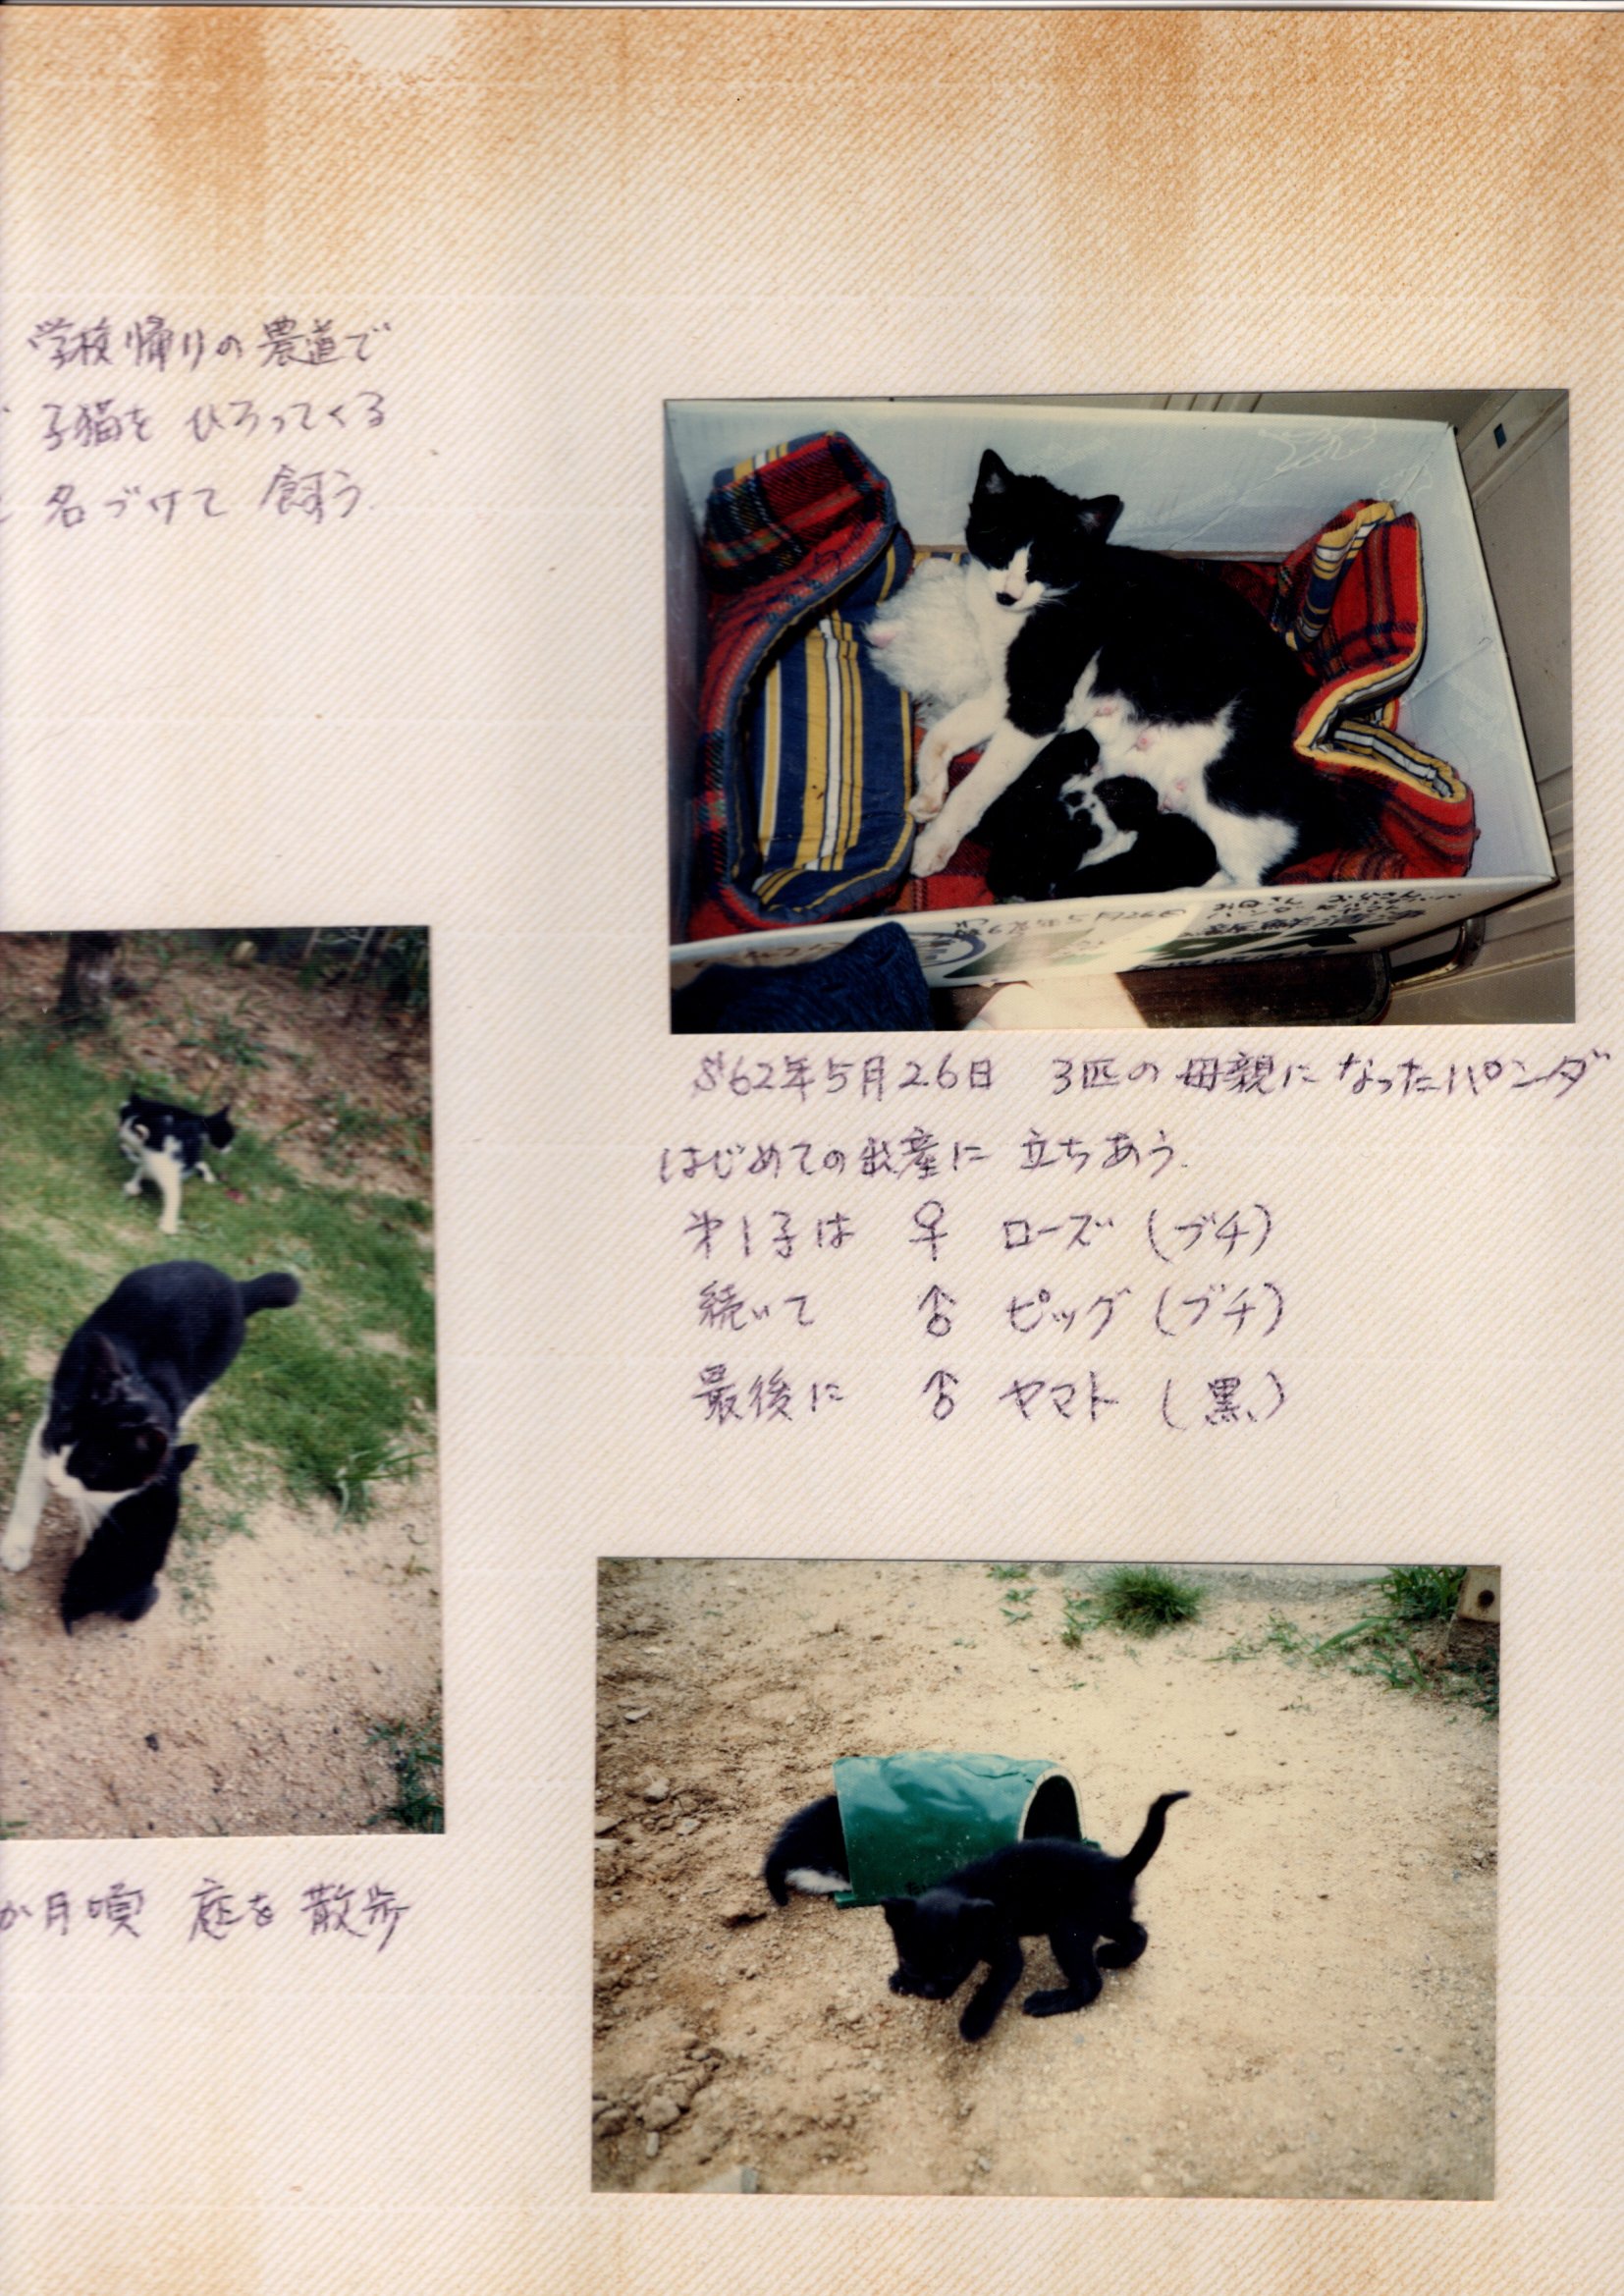 学校帰りの農道で
子猫を ひろってくる
名づけて 飼う.
S62年5月26日 3匹の母親になったパンダ
はじめての出産に 立ちあう.
オ1子は ♀ ローズ(ブチ)
続いて ♂ ピッグ(ブチ)
最後に ♂ ヤマト(黒)
か月頃 庭を散歩